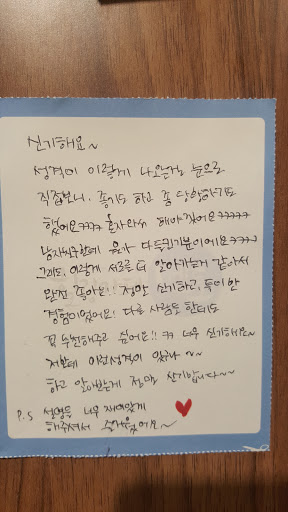 신기해요~
성격이 이렇게 나오는걸 눈으로
직접보니, 좋기도 하고 좀 당황하기도
했어요ㅋㅋㅋㅋ 혼자와서
남자친구한테 다
그래도, 이렇게 서로를 더 알아가는거 같아서
완전 좋아요!! 정말 신기하고, 특이한
경험이었어요! 다른 사람들 한테도
꼭 추천해주고 싶어요!! ㅋㅋ 너무 신기해요~
저한테 이런성격이 있구나 ~~
하고 알아보는게 정말 신기합니다~
P.S 설명을 너무 재미있게
해주셔서 즐거웠어요~